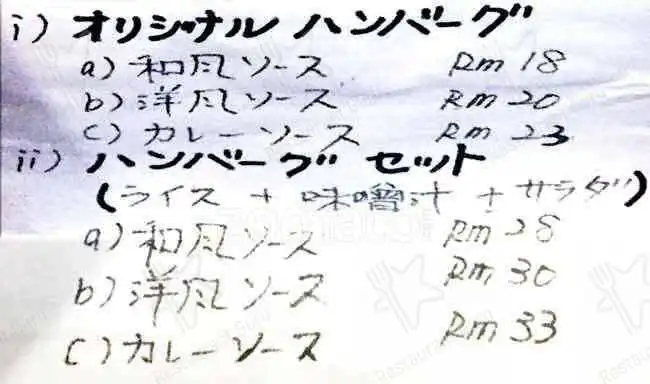 i) オリジナル ハンバーグ
a) 和風ソース Rm 18
b) 洋風ソース Rm 20
c) カレーソース Rm 23
ii) ハンバーグ セット
(ライス + 味噌汁 + サラダ)
a) 和風ソース Rm 28
b) 洋風ソース Rm 30
c) カレーソース Rm 33